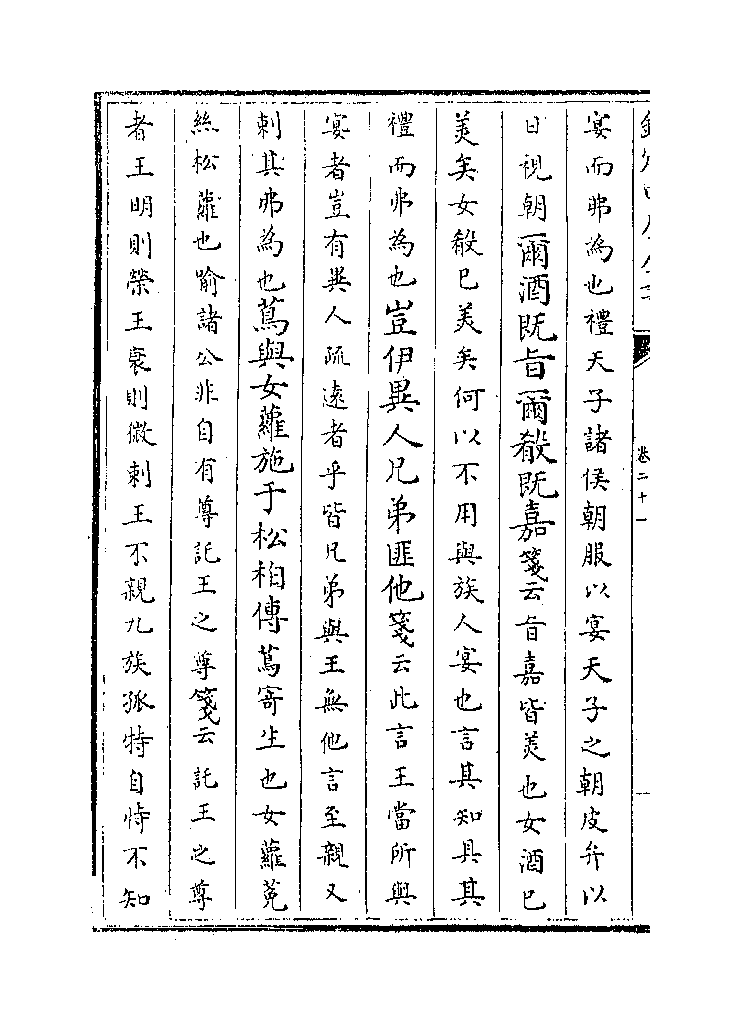 卷二十一
宴而弗為也禮天子諸侯朝服以宴天子之朝皮弁以
日視朝爾酒既旨爾殽既嘉箋云旨嘉皆美也女酒已
美矣女殽已美矣何以不用與族人宴也言其知具其
禮而弗為也豈伊異人兄弟匪他箋云此言王當所與
宴者豈有異人疏遠者乎皆兄弟與王無他言至親又
刺其弗為也蔦與女蘿施于松柏傳蔦寄生也女蘿菟
絲松蘿也喻諸公非自有尊託王之尊箋云託王之尊
者王明則榮王衰則微刺王不親九族孤特自恃不知